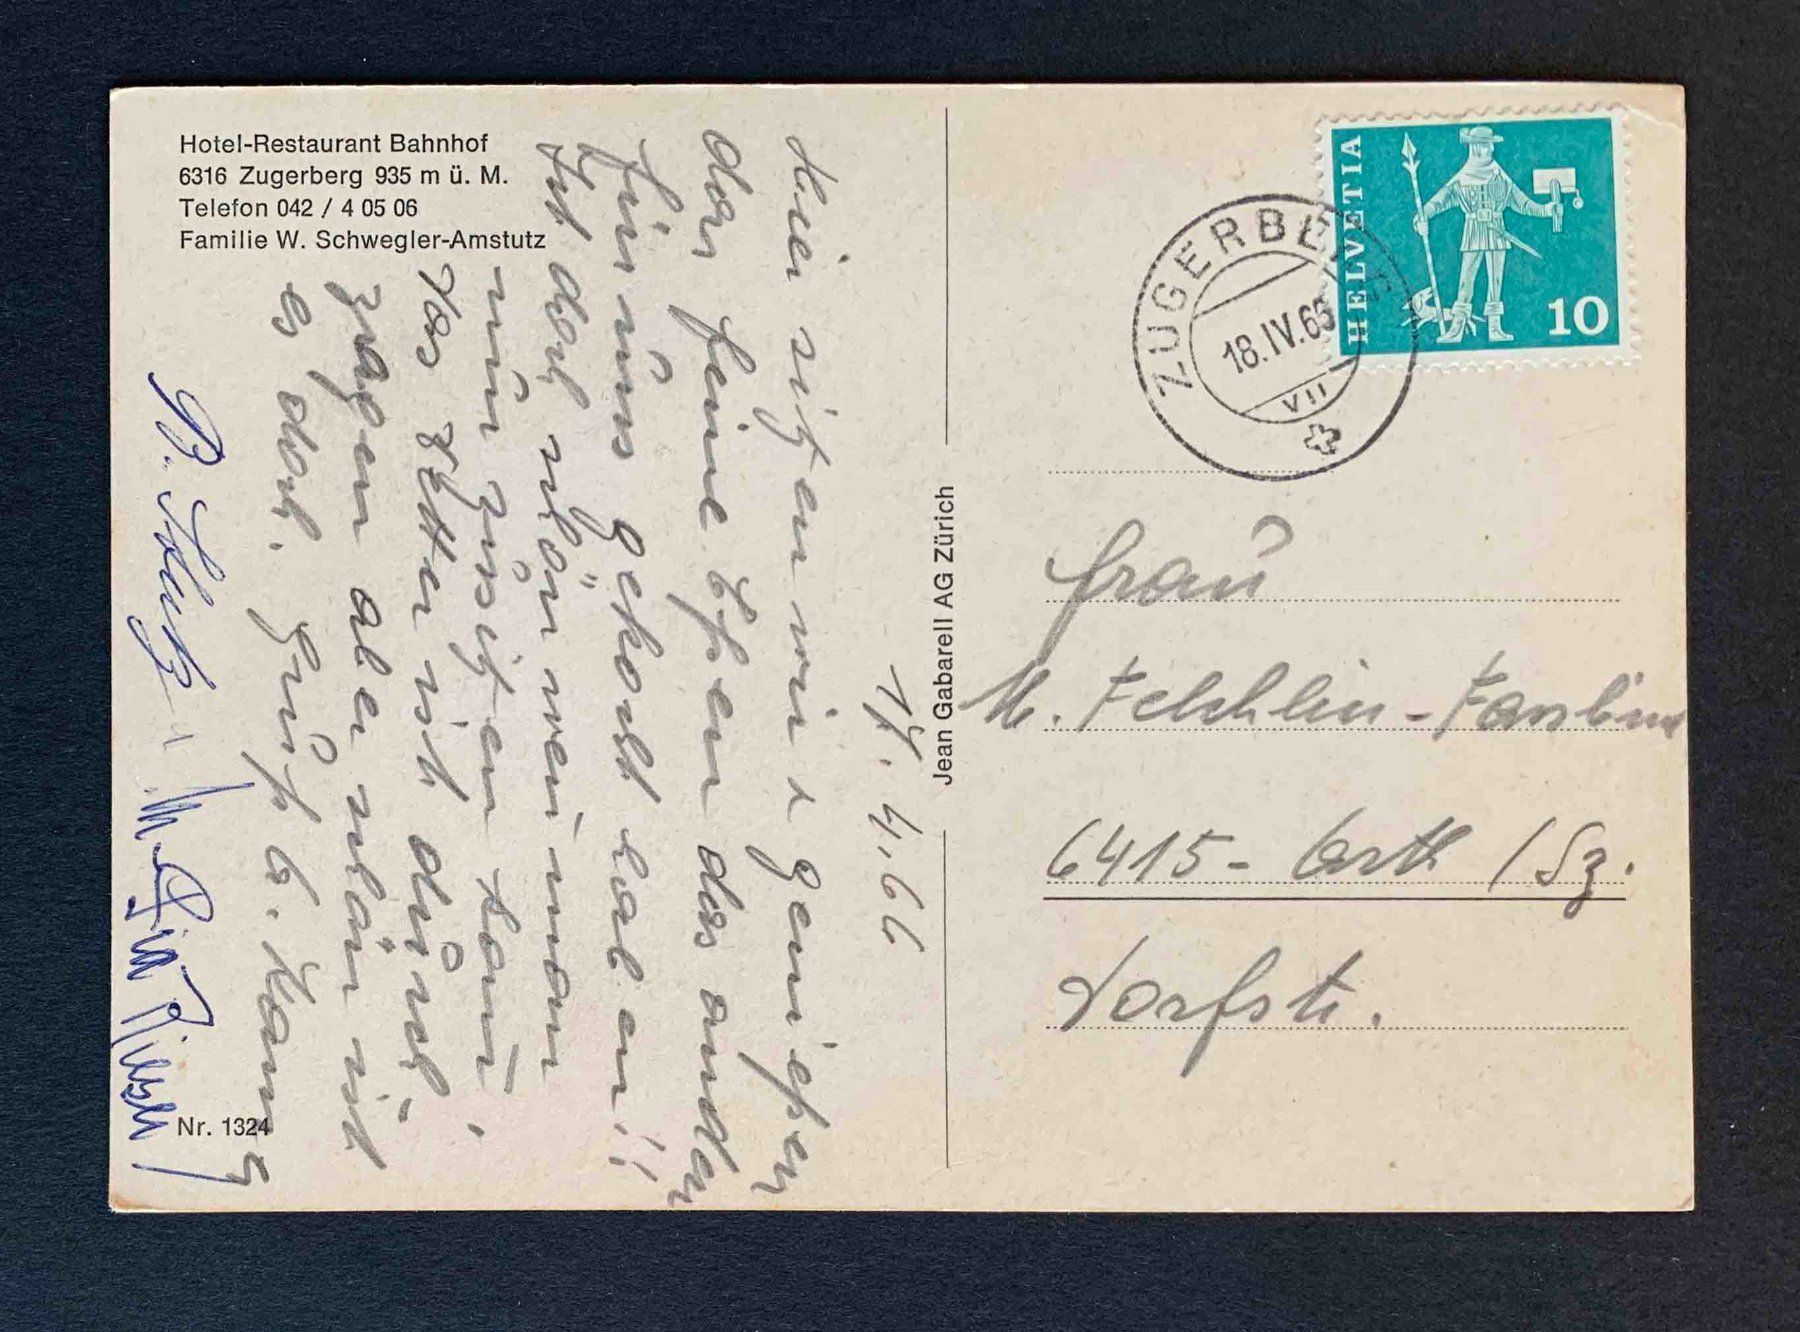 Hotel-Restaurant Bahnhof
6316 Zugerberg 935 m ü. M.
Telefon 042 / 4 05 06
Familie W. Schwegler-Amstutz
17. 4. 66
Hier sitzen wir & geniessen
das feine Essen das andere
für uns gekocht haben!!
Ist doch schön wenn man
nur zusitzen kann,
Das Wetter ist durch-
zogen aber schön ist
es doch. Gruss
Nr. 1324
Jean Gabarell AG Zürich
HELVETIA
10
ZUGERBERG
18.IV.66
VII
Frau
M. Felchlin-
6415- Arth /Sz.
Dorfstr.